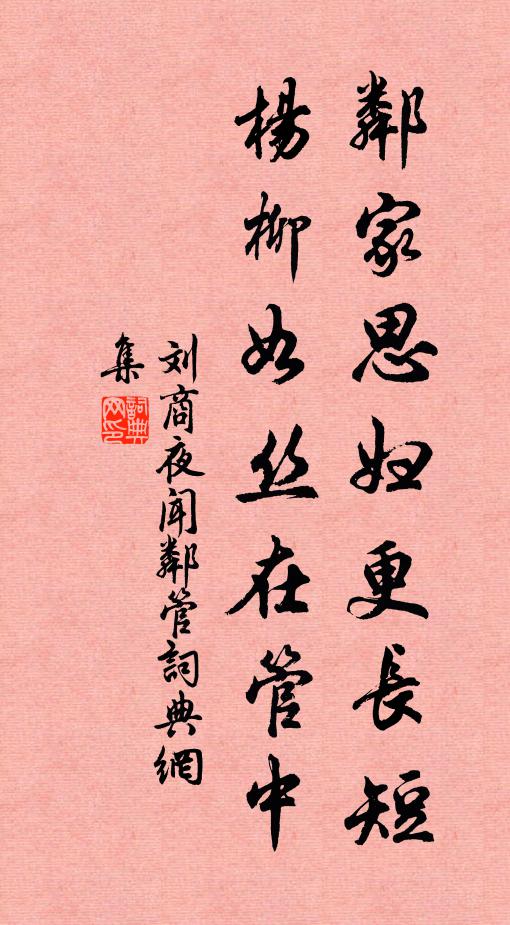 鄰家思妇更長短
楊柳如丝在管中
刘商夜闻鄰管詞典網
集
詞典网印